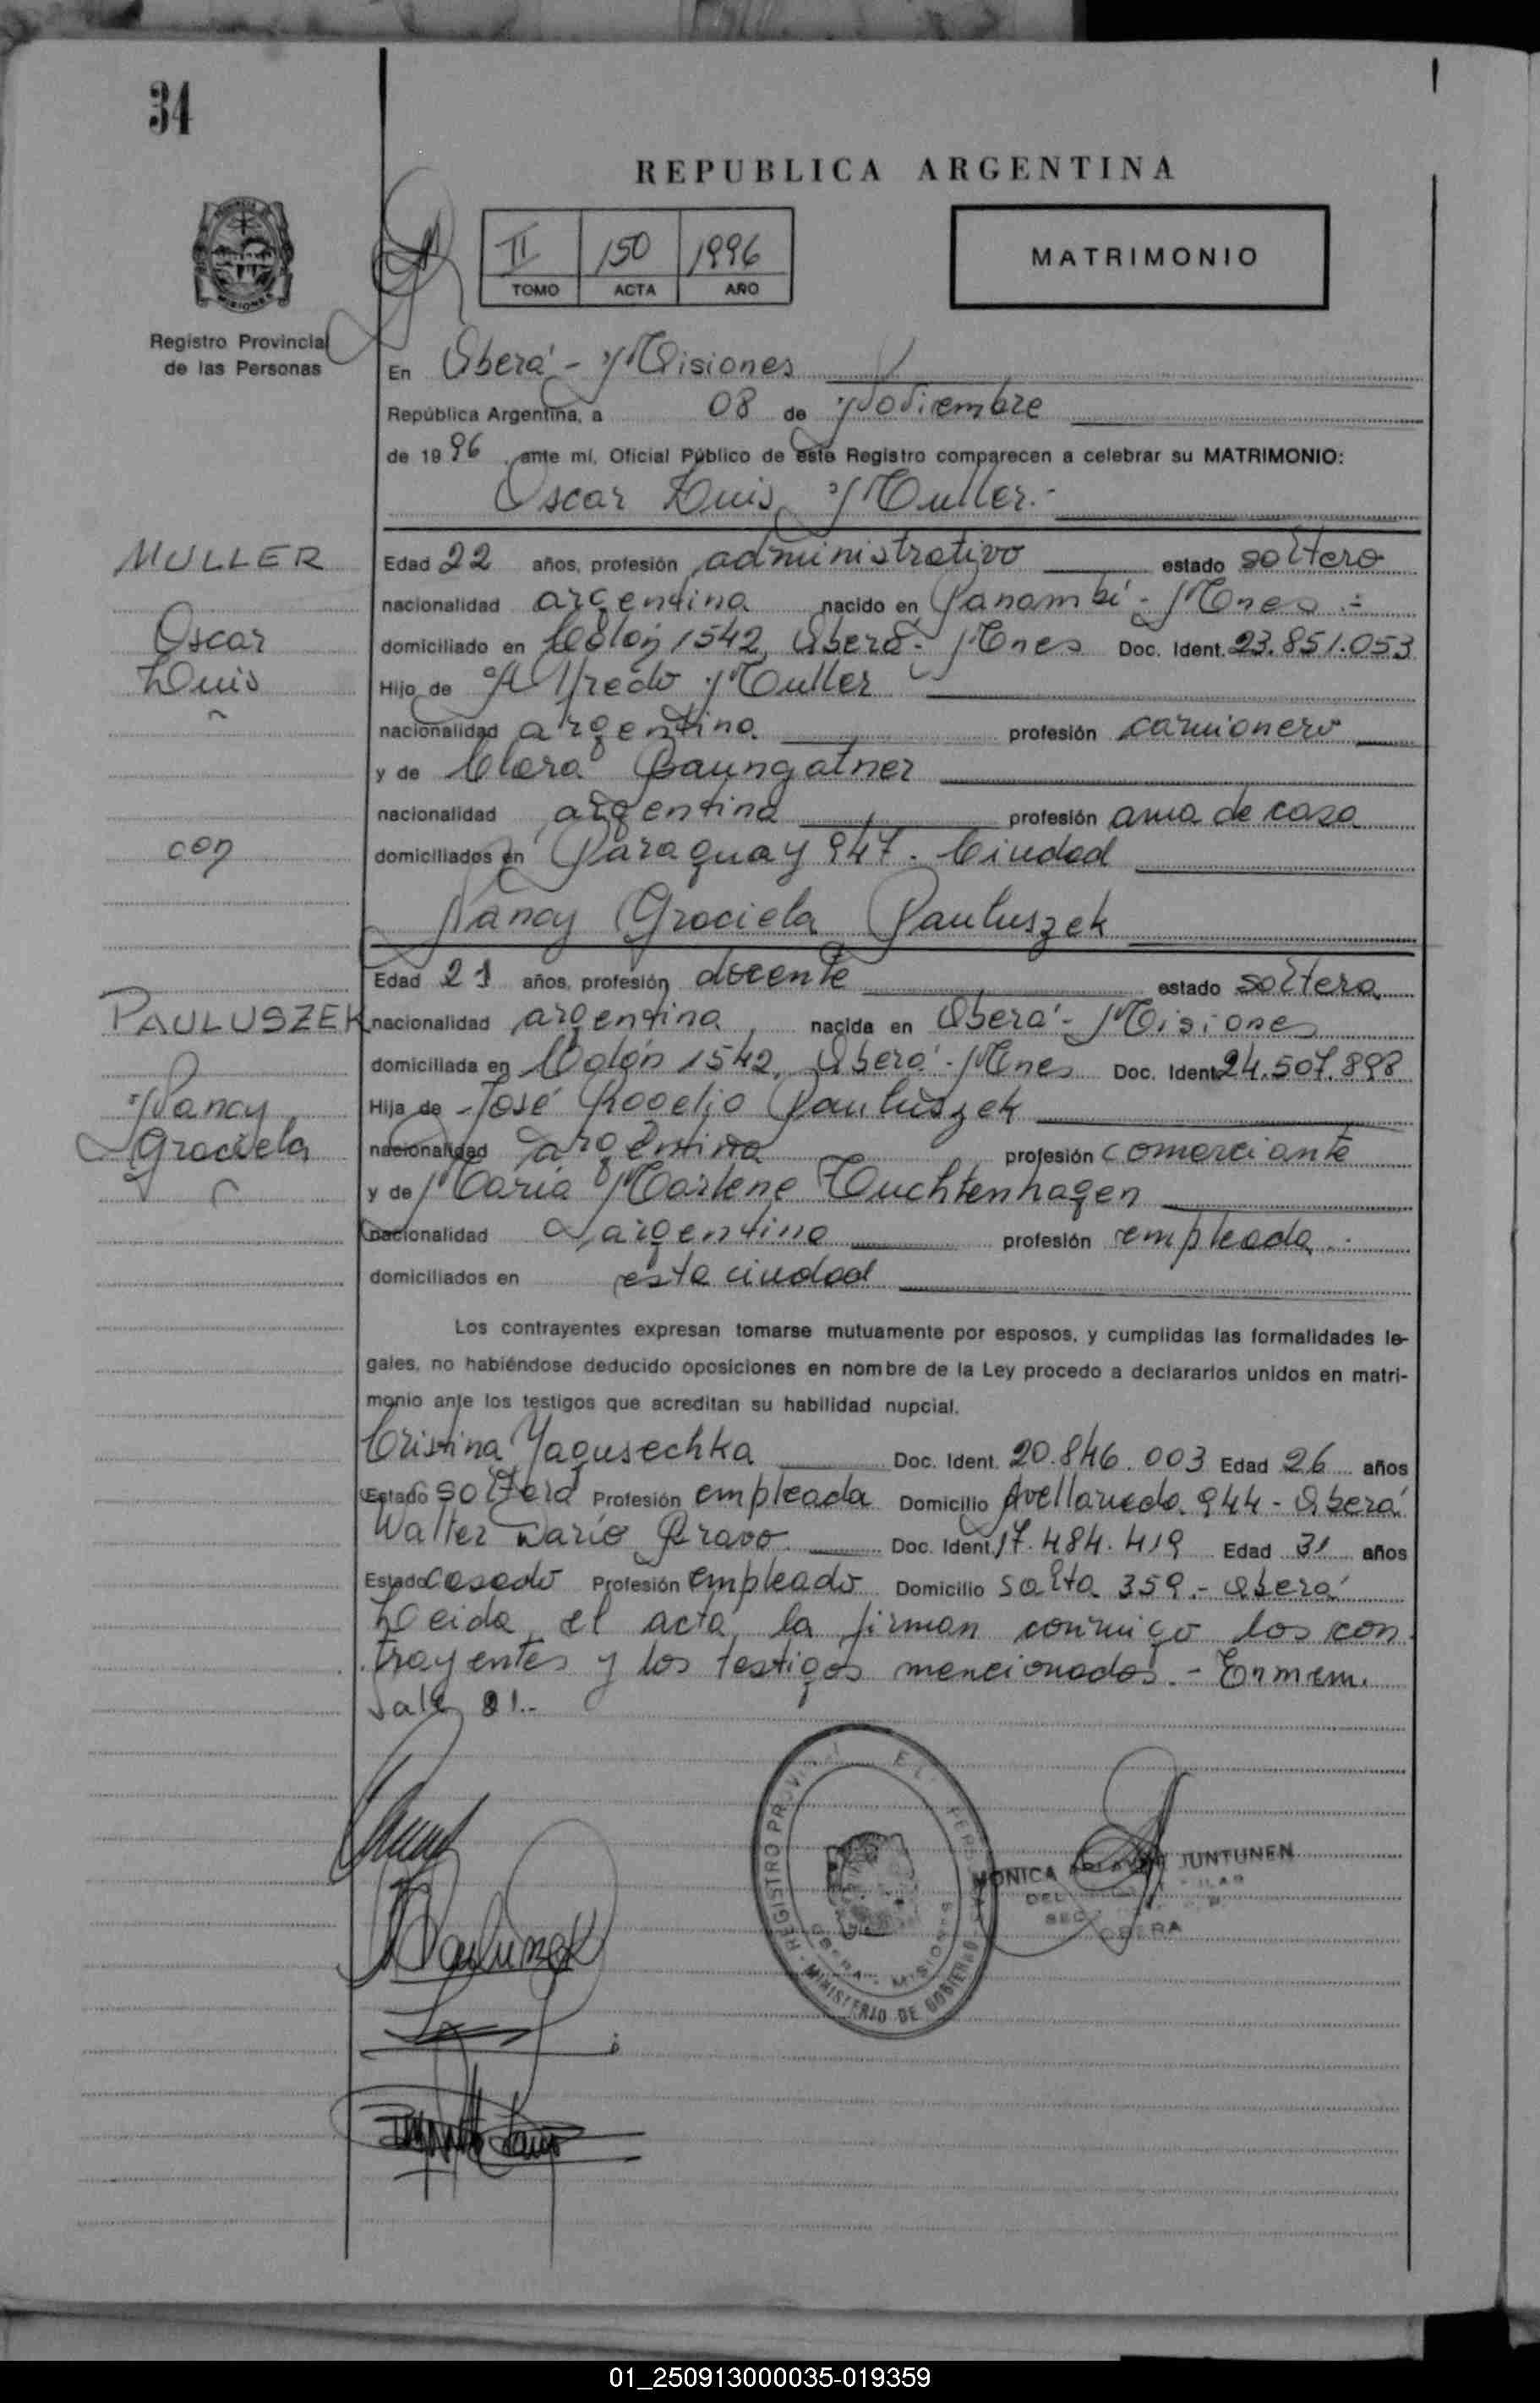 34
REPUBLICA ARGENTINA
II 150 1996
TOMO ACTA AÑO
MATRIMONIO
Registro Provincial
de las Personas
En Oberá - Misiones
República Argentina, a 08 de Noviembre
de 1996, ante mí, Oficial Público de este Registro comparecen a celebrar su MATRIMONIO:
Oscar Luis Muller.-
MULLER
Oscar
Luis
Edad 22 años, profesión administrativo estado soltero
nacionalidad argentina nacido en Panambí - Mnes.-
domiciliado en Colón 1542, Oberá - Mnes Doc. Ident. 23.851.053
Hijo de Alfredo Muller
nacionalidad argentina profesión camionero
y de Clara Baungatner
nacionalidad argentina profesión ama de casa
con
domiciliados en Paraguay 947. Ciudad
Nancy Graciela Pauluszek
PAULUSZEK
Nancy
Graciela
Edad 21 años, profesión docente estado soltera
nacionalidad argentina nacida en Oberá - Misiones
domiciliada en Colón 1542, Oberá - Mnes Doc. Ident. 24.507.898
Hija de José Rogelio Pauluszek
nacionalidad argentina profesión comerciante
y de María Marlene Tuchtenhagen
nacionalidad argentina profesión empleada.-
domiciliados en esta ciudad
Los contrayentes expresan tomarse mutuamente por esposos, y cumplidas las formalidades le-
gales, no habiéndose deducido oposiciones en nombre de la Ley procedo a declararlos unidos en matri-
monio ante los testigos que acreditan su habilidad nupcial.
Cristina Yagusechka Doc. Ident. 20.846.003 Edad 26 años
Estado soltera Profesión empleada Domicilio Avellaneda 944 - Oberá
Walter Darío Bravo Doc. Ident. 17.484.419 Edad 31 años
Estado casado Profesión empleado Domicilio Salta 359.- Oberá
Leida el acta, la firman conmigo los con
trayentes y los testigos mencionados.- Enmem.
Vale 21.-
REGISTRO PROVINCIAL DE
MINISTERIO DE GOBIERNO
OBERA - MISIONES
MONICA JUNTUNEN
OBERA
01_250913000035-019359